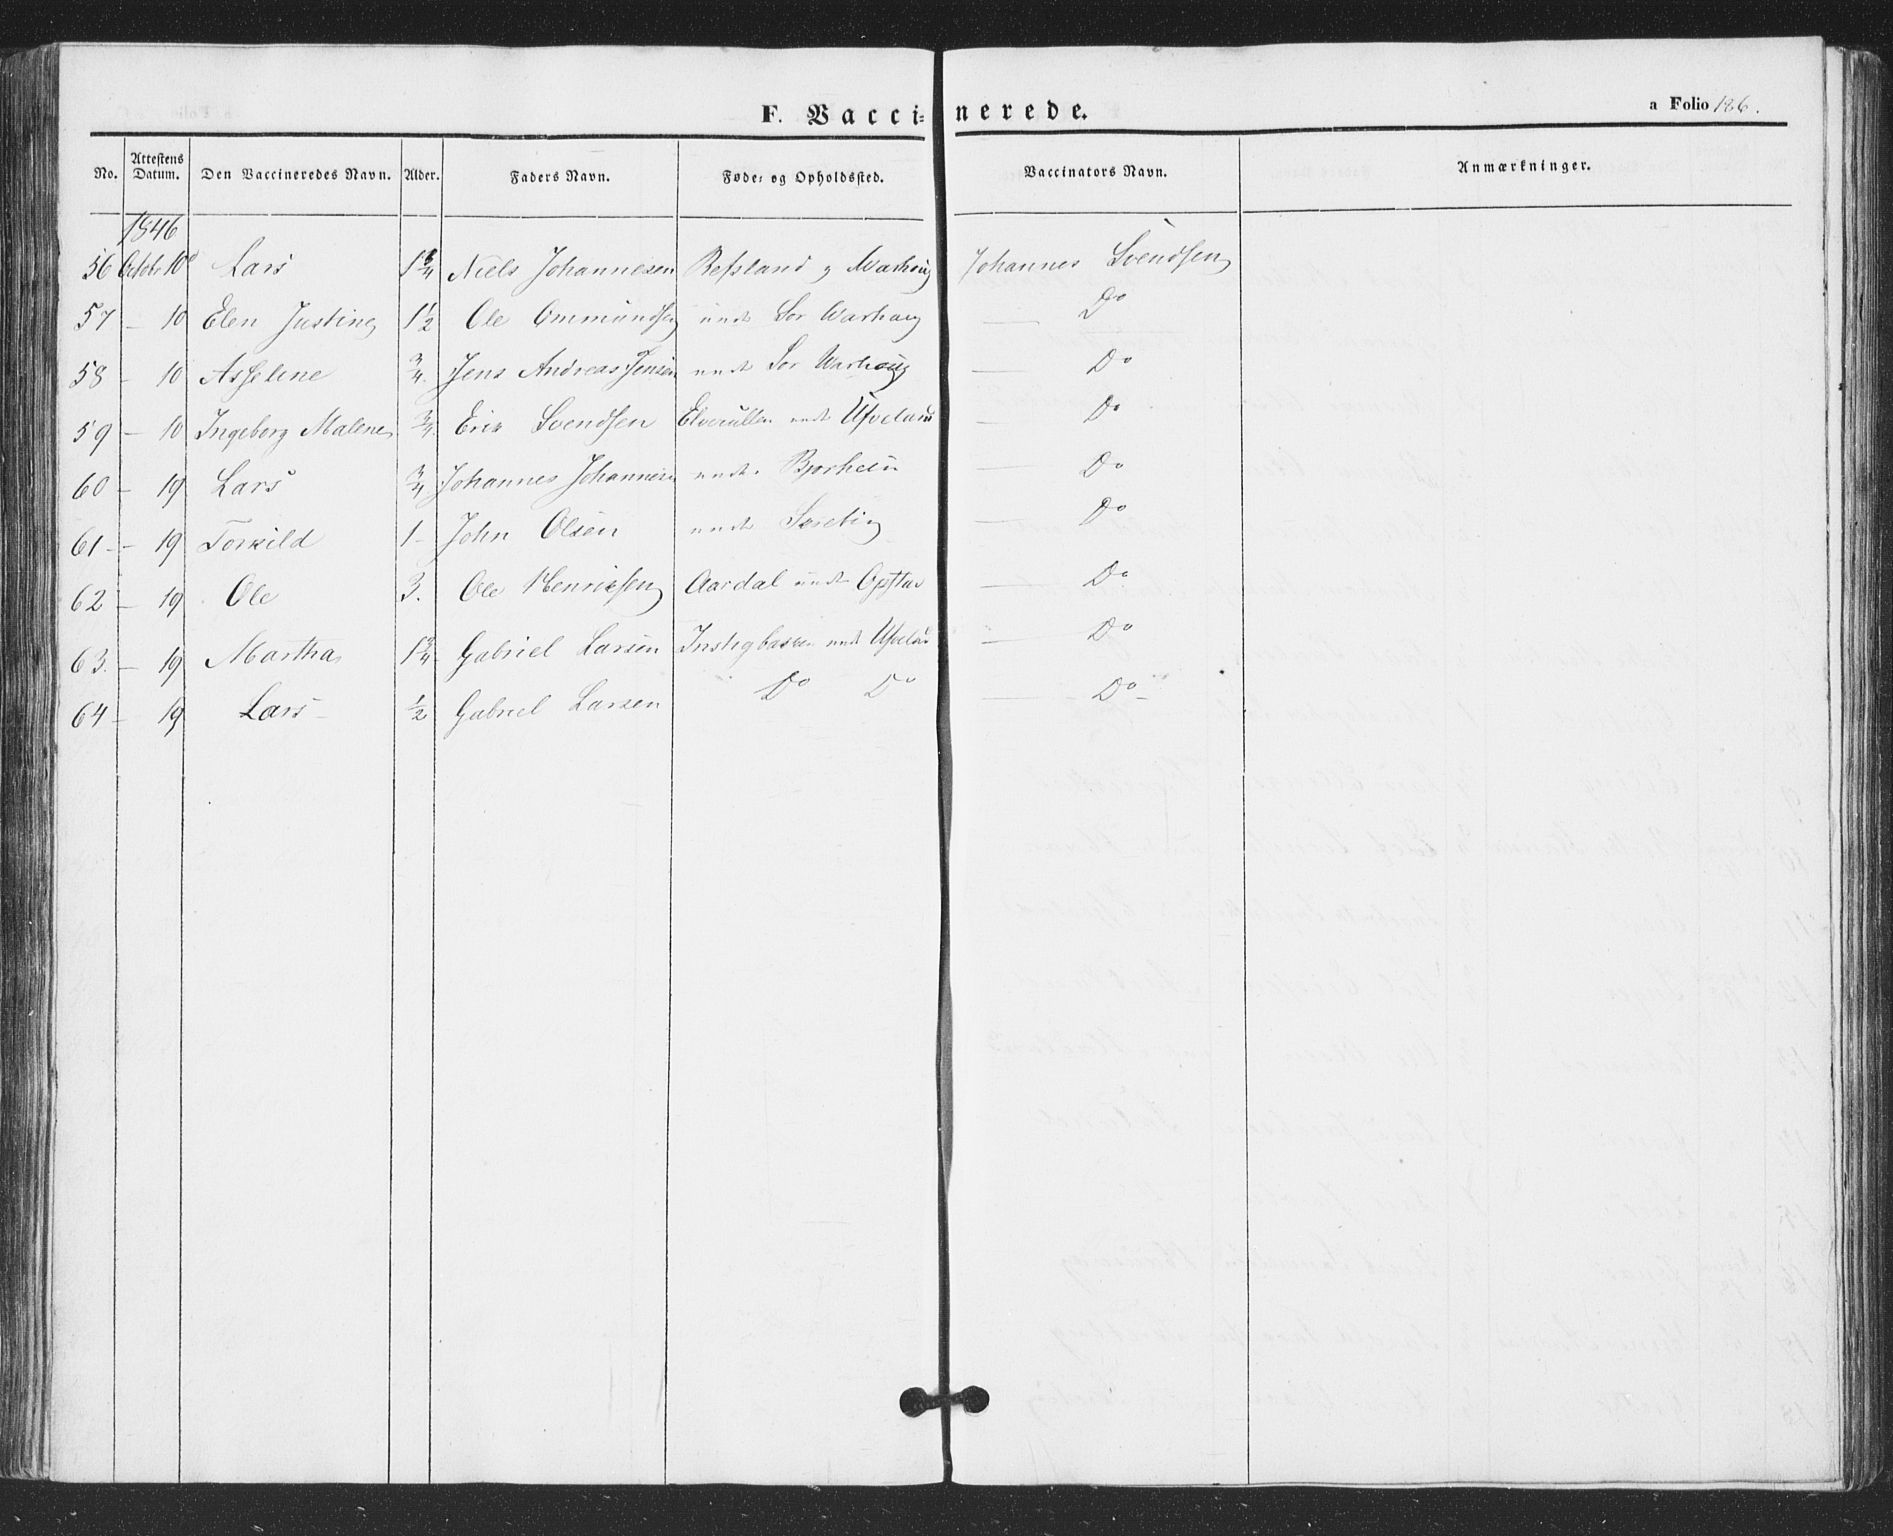 F. Vaccinerede.
a Folio 186.
No. Attestens Datum. Den Vaccineredes Navn. Alder. Faders Navn. Føde- og Opholdssted. Vaccinators Navn. Anmærkninger.
1846
56 Octobr 10d Lars 1 3/4 Niels Johannesen Refsland Johannes Svendsen
57 - 10 Elen Justine 1 1/2 Ole Ommundsen undr Sør Warhaug Do
58 - 10 Asseline 3/4. Jens Andreas Jensen undr Sør Warhaug Do
59 - 10 Ingeborg Malene 3/4. Erik Svendsen undr Do
60 - 19 Lars 3/4 Johannes Johannesen undr Bjorheim Do
61 - 19 Torkild 1 - John Olsen undr Do
62 - 19 Ole 3. Ole Henriksen Aardal undr Opstad Do
63. - 19 Martha 1 3/4 Gabriel Larsen undr Do
64 - 19 Lars 1/2 Gabriel Larsen Do Do Do